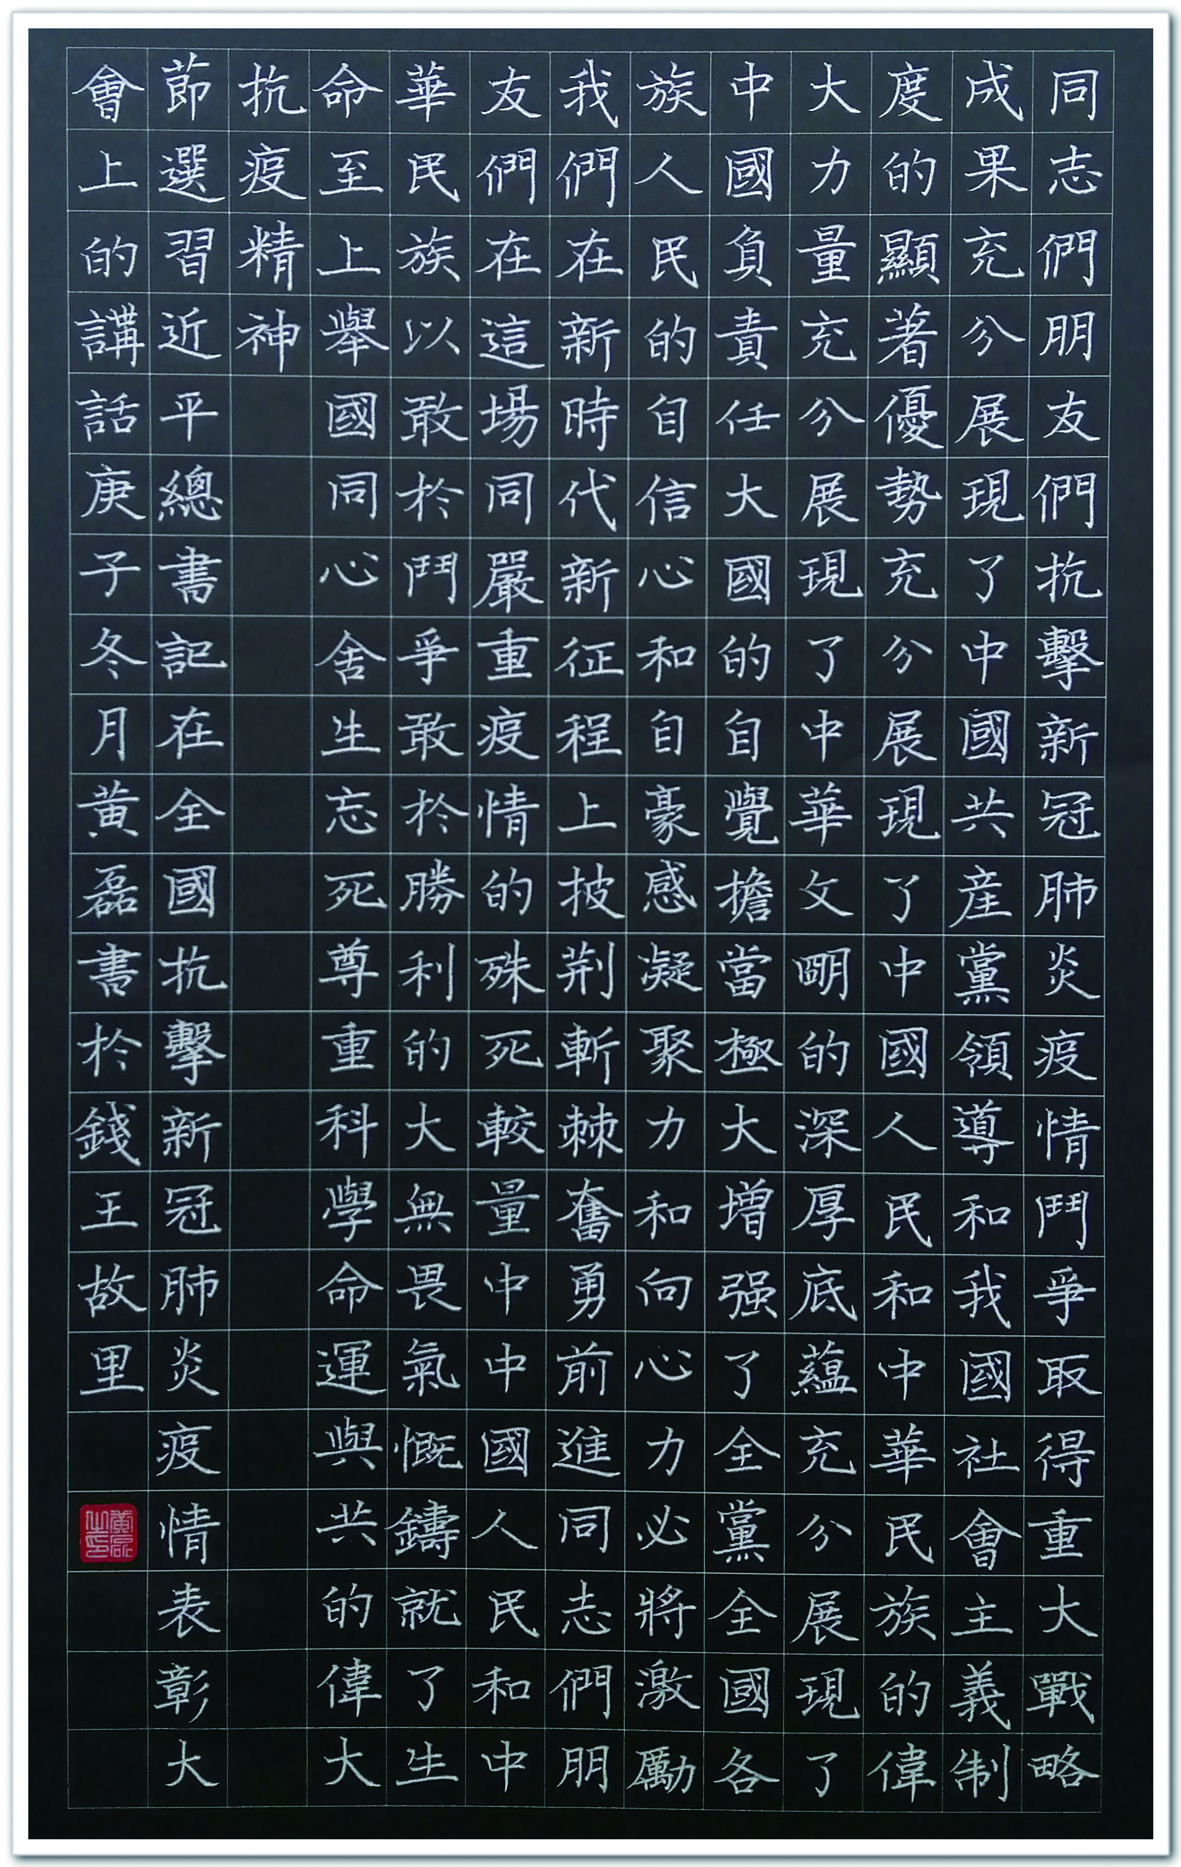 同志們朋友們抗擊新冠肺炎疫情鬥爭取得重大戰略
成果充分展現了中國共産黨領導和我國社會主義制
度的顯著優勢充分展現了中國人民和中華民族的偉
大力量充分展現了中華文明的深厚底蘊充分展現了
中國負責任大國的自覺擔當極大增强了全黨全國各
族人民的自信心和自豪感凝聚力和向心力必將激勵
我們在新時代新征程上披荆斬棘奮勇前進同志們朋
友們在這場同嚴重疫情的殊死較量中中國人民和中
華民族以敢於鬥爭敢於勝利的大無畏氣慨鑄就了生
命至上舉國同心舍生忘死尊重科學命運與共的偉大
抗疫精神
節選習近平總書記在全國抗擊新冠肺炎疫情表彰大
會上的講話庚子冬月黄磊書於錢王故里
黄磊之印